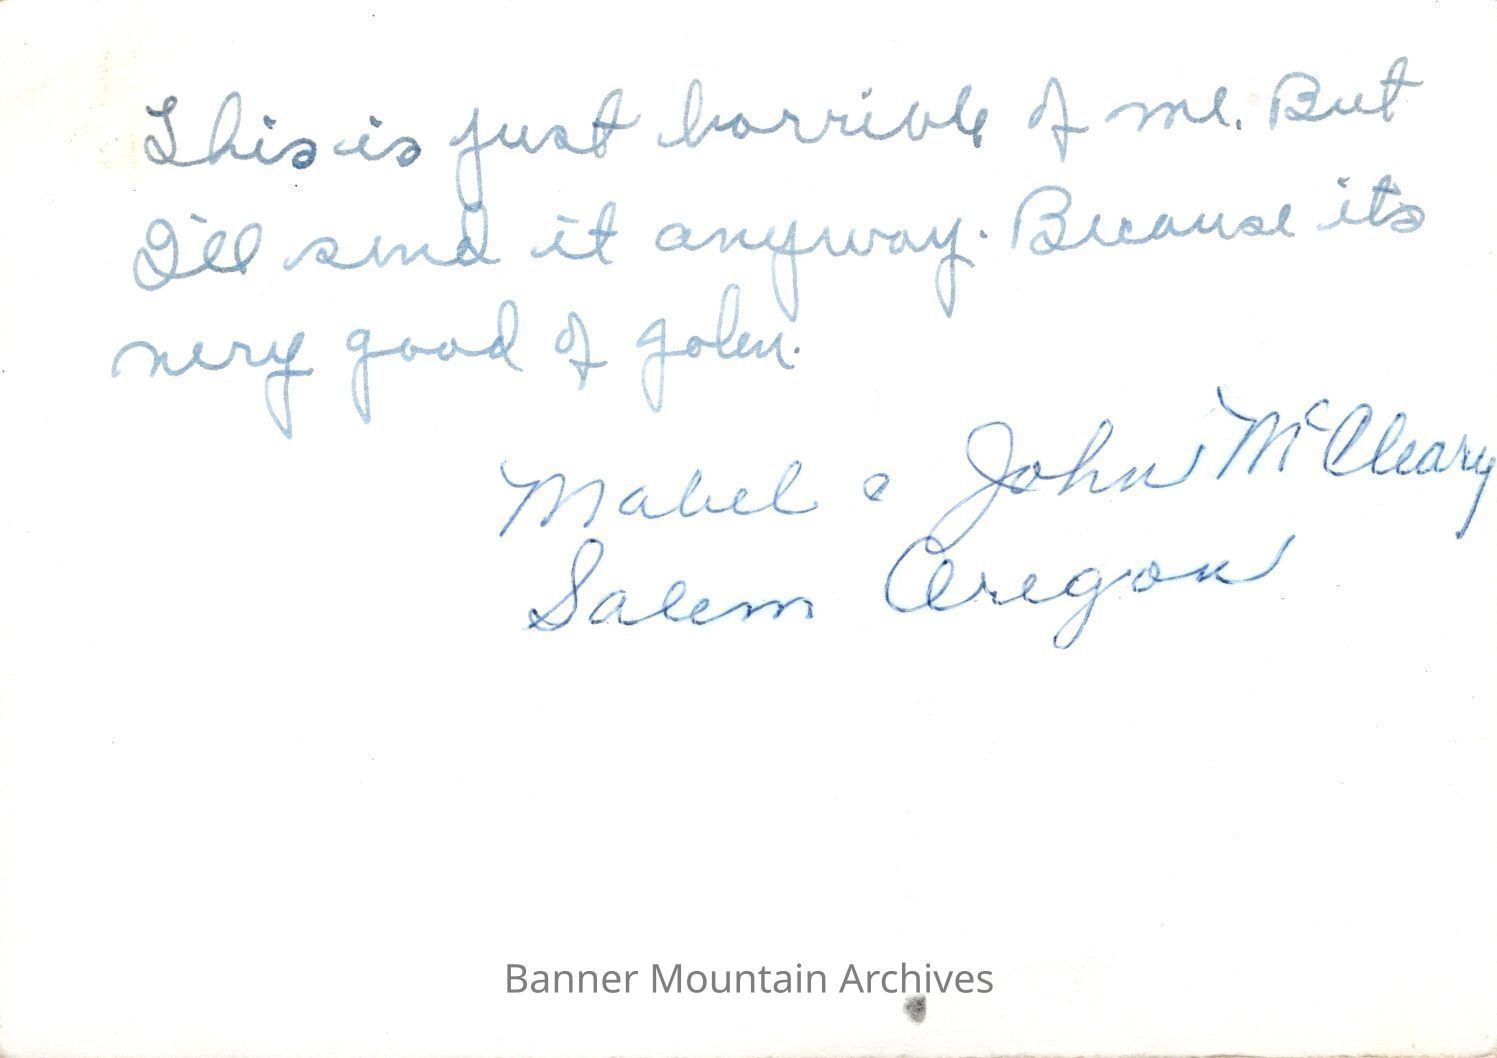 This is just horrible of me. But
I'll send it anyway. Because its
very good of John.
Mabel & John McCleary
Salem Oregon
Banner Mountain Archives